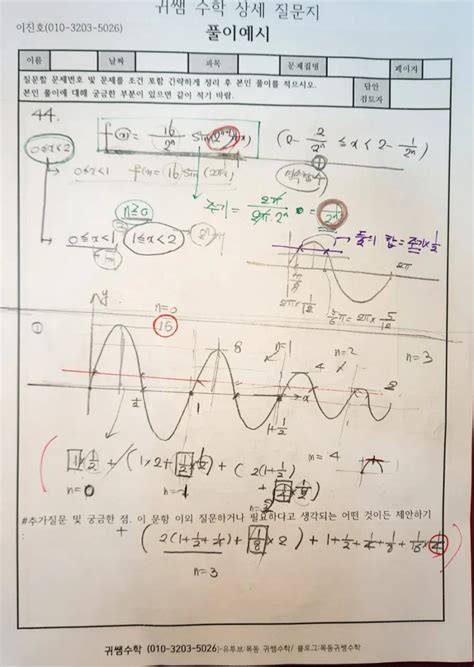 귀쌤 수학 상세 질문지
이진호(010-3203-5026)
풀이예시
이름 날짜 과목 문제집명 페이지
질문할 문제번호 및 문제를 조건 포함 간략하게 정리 후 본인 풀이를 적으시오.
본인 풀이에 대해 궁금한 부분이 있으면 같이 적기 바람.
답안
검토자
44.
f(x) = 16/2ⁿ sin(2ⁿ⁺¹πx) (2 - 2/2ⁿ ≤ x < 2 - 1/2ⁿ)
0≤x<2
0≤x<1 f(x) = 16 sin(2πx)
n≥0
주기 = 2π/2π·2ⁿ = 1/2ⁿ
0≤x<1 1≤x<2
합=주기×1/2
2π
2π×1/12
5/6π = 2π×5/12
y
n=0
① 16
8 n=1 4 n=2 2 n=3
1/2 1 1+1/2
1×1/2 + (1×2+1/2×1/2) + (2(1+1/2)
n=0 n=1 n=2
n=4
#추가질문 및 궁금한 점. 이 문항 이외 질문하거나 필요하다고 생각되는 어떤 것이든 제안하기
+ (2(1+1/2+1/4)+1/8×2) + 1+1/2+1/4+1/8+1/16×4
n=3
귀쌤수학 (010-3203-5026)-유투브:목동 귀쌤수학/ 블로그:목동귀쌤수학